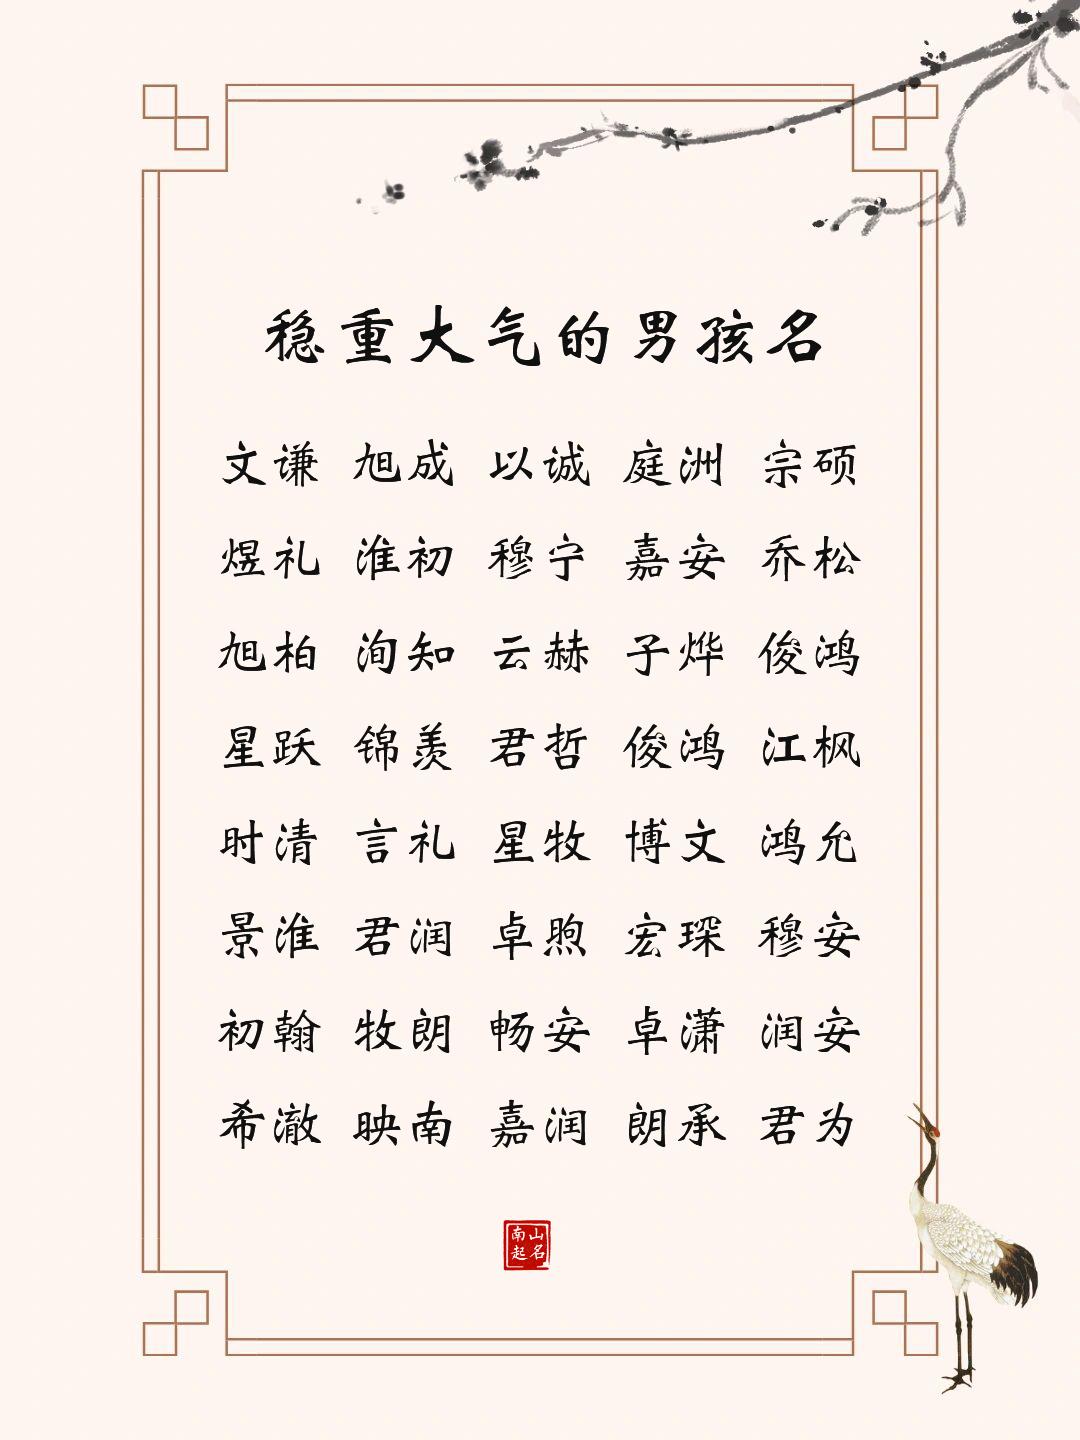 稳重大气的男孩名
文谦 旭成 以诚 庭洲 宗硕
煜礼 淮初 穆宁 嘉安 乔松
旭柏 洵知 云赫 子烨 俊鸿
星跃 锦羡 君哲 俊鸿 江枫
时清 言礼 星牧 博文 鸿允
景淮 君润 卓煦 宏琛 穆安
初翰 牧朗 畅安 卓潇 润安
希澈 映南 嘉润 朗承 君为
南山
起名